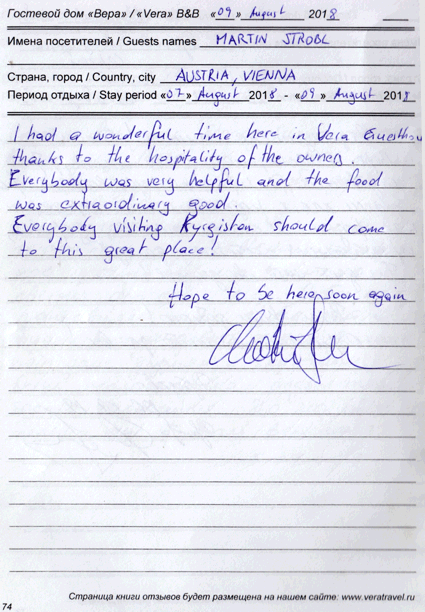 Гостевой дом «Вера» / «Vera» B&B «09» August 2018
Имена посетителей / Guests names MARTIN STROBL
Страна, город / Country, city AUSTRIA, VIENNA
Период отдыха / Stay period «07» August 2018 - «09» August 2018
I had a wonderful time here in Vera Guesthou
thanks to the hospitality of the owners.
Everybody was very helpful and the food
was extraordinary good.
Everybody visiting Kyrgistan should come
to this great place!
Hope to be here soon again
74
Страница книги отзывов будет размещена на нашем сайте: www.veratravel.ru